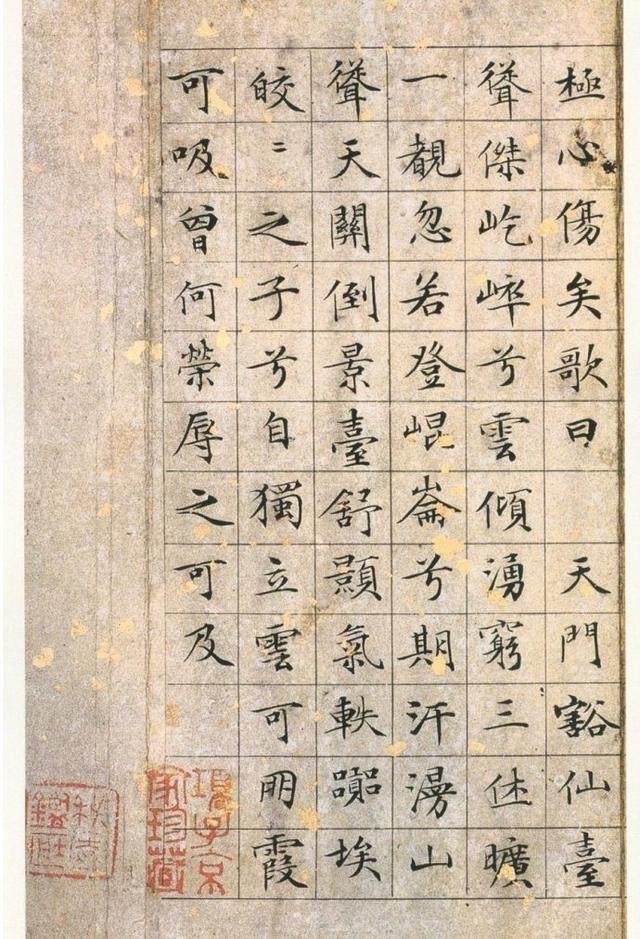 極心傷矣歌曰 天門豁仙臺
聳傑屹崪兮雲傾湧窮三休曠
一覩忽若登崐崙兮期汗漫山
聳天關倒景臺舒顥氣軼囂埃
皎〻之子兮自獨立雲可朋霞
可吸曾何榮辱之可及
項子京家珍藏